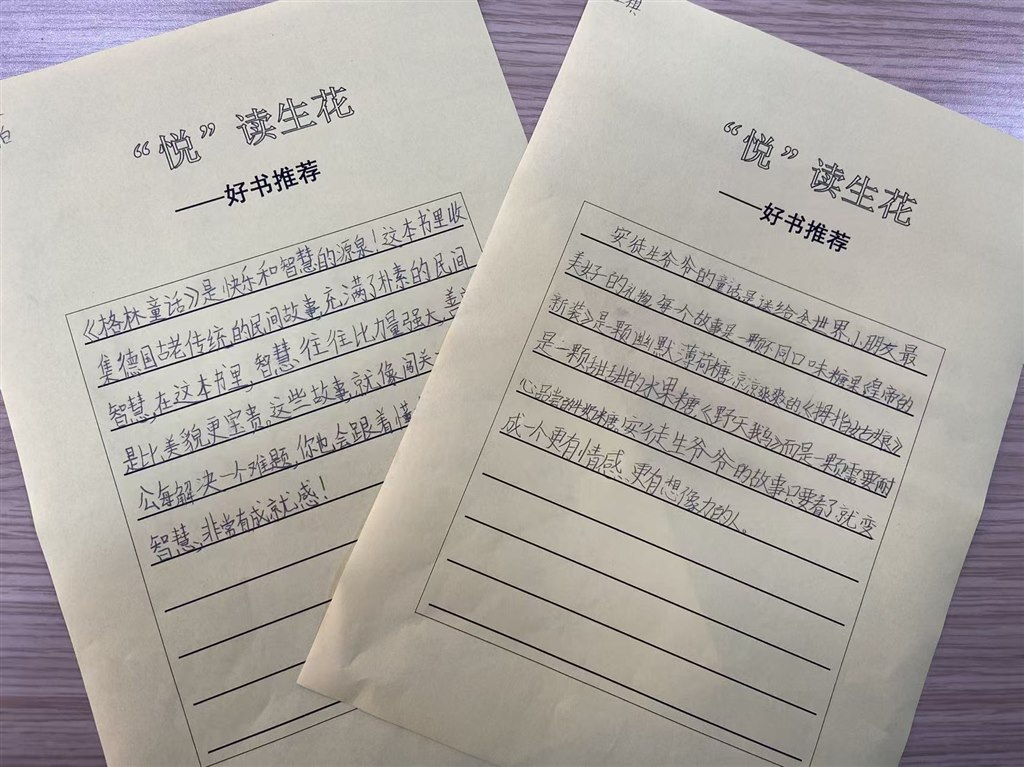 “悦”读生花
——好书推荐
《格林童话》是快乐和智慧的源泉！这本书里收
集德国古老传统的民间故事,充满了朴素的民间
智慧,在这本书里,智慧往往比力量强大,善
是比美貌更宝贵。这些故事就像闯关
公每解决一个难题,你也会跟着懂
智慧,非常有成就感！
“悦”读生花
——好书推荐
安徒生爷爷的童话是送给全世界小朋友最
美好的礼物,每个故事是一颗不同口味糖果《皇帝的
新装》是颗幽默薄荷糖,凉凉爽爽的《拇指姑娘》
是一颗甜甜的水果糖《野天鹅》而是一颗需要耐
心品尝的牛奶糖,安徒生爷爷的故事只要看了就变
成一个更有情感、更有想像力的人。